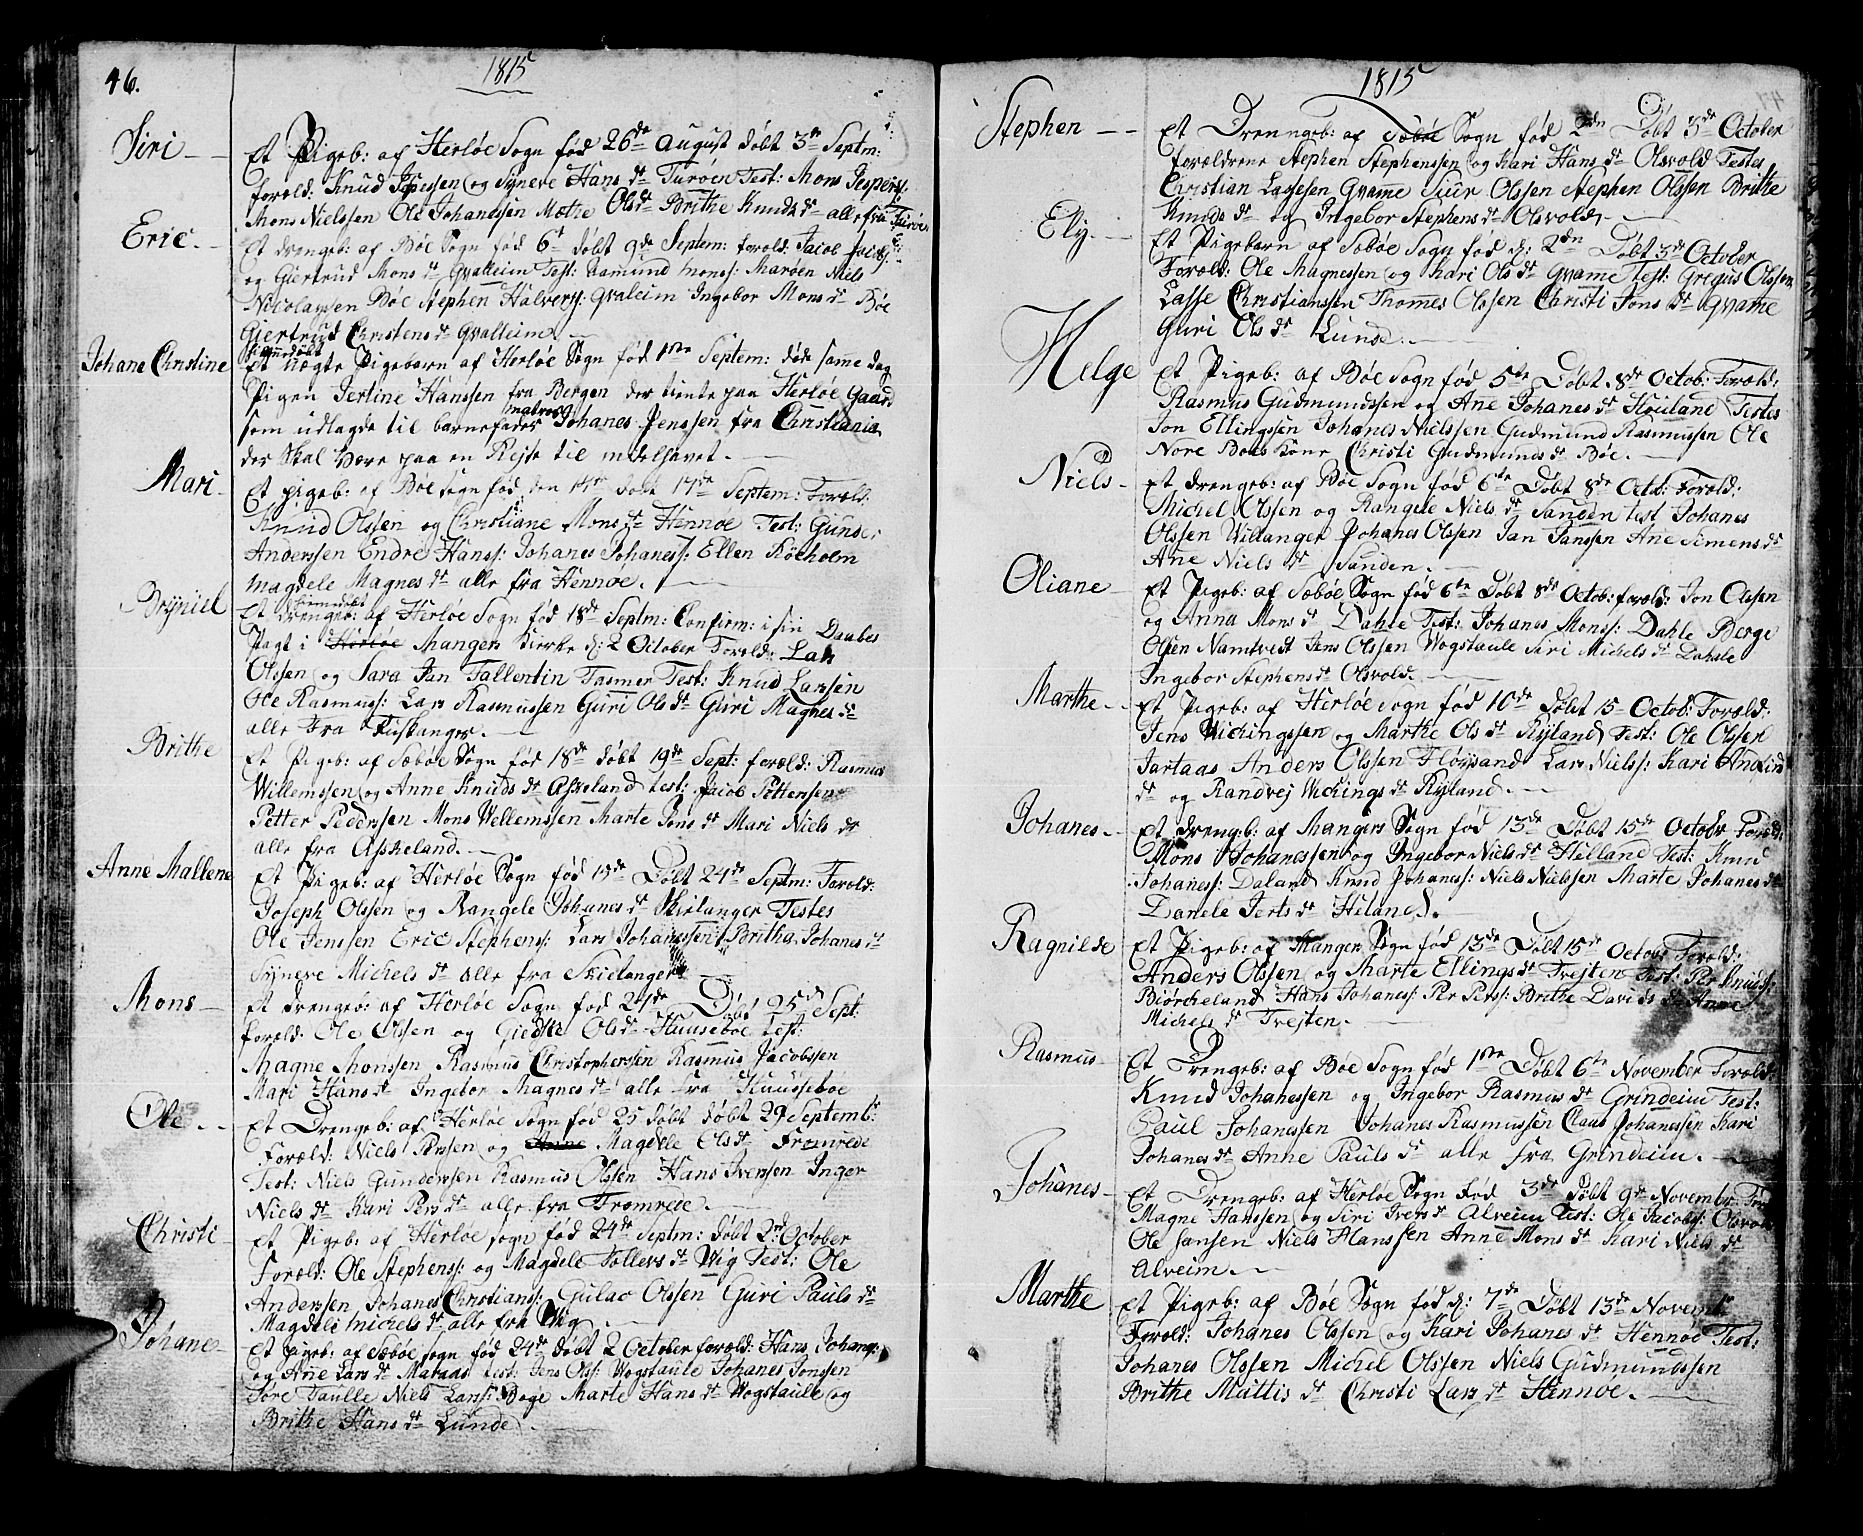 46.
1815
Siri - -
Et Pigeb: af Herløe Sogn fød 26de August døbt 3de Septm:
foræld: Knud Jepessen og Syneve Hans dr Turøen Test: Mons Jespers:
Mons Nielssen Ole Johanessen Mæthe Ols dr Brithe Knuds dr alle fra Turøe
Eric. -
Et drengeb: af Bøe Sogn fød 6t døbt 9de Septem: foræld: Jacob Jacobs:
og Giertrud Mons dr Qvalleim Test: Aamund Monss: Marøen Niels
Nicolayssen Bøe Stephen Halverss: Qvaleim Ingebor Mons dr Bøe
Giertrud Christens dr Qvalleim. -
Johane Christine
hiemdøbt
Et uægte Pigebarn af Herløe Sogn fød 1ste Septem: døde same dag
Pigen Jertine Hanssen fra Bergen der tiente paa Herløe Gaard
matros
som udlagde til barnefader Johanes Jenssen fra Christiania
der Skal være paa en Rejse til middelhavet. -
Mari -
Et pigeb: af Bøe Sogn fød den 14de døbt 17de Septem: Foræld:
Knud Olssen og Christiane Mons dr Hennøe Test: Gunder
Anderssen Endre Hanss: Johanes Johaness: Ellen Kôeholm
Magdele Magnes dr alle fra Hennøe. -
Bryniel
hiemdøbt
Et drengeb: af Herløe Sogn fød 18de Septm: Confirm: i sin Daabes
Pagt i Herløe Manger Kirke d: 2 October Foræld: Lars
Olssen og Sara Jan Tallentin Tasmer Test: Knud Larssen
Ole Rasmuss: Lars Rasmussen Guri Ols dr Guri Magnes dr
alle fra Fuskanger. -
Brithe
Et Pigeb: af Sæbøe Sogn fød 18de døbt 19de Sept: foræld: Rasmus
Willemssen og Anne Knuds dr Askeland test: Jacob Pettersen
Petter Pederssen Mons Wellemssen Marte Jens dr Mari Niels dr
alle fra Askeland. -
Anne Mallene
Et Pigeb: af Herløe Sogn fød 15de Døbt 24de Septm: Foræld:
Joseph Olssen og Rangele Johanes dr Skielanger Testes
Ole Jenssen Eric Stephens: Lars Johanssen Britha Johanes dr
Syneve Michels dr alle fra Skielanger
Mons -
Et drengeb: af Herløe Sogn fød 24de Døbt 25de Sept:
foræld: Ole Olssen og Ols dr Huusebøe test:
Magne Monssen Rasmus Christopherssen Rasmus Jacobssen
Mari Hans dr Ingebor Magnes dr alle fra Huussebøe
Ole - -
Et Drengeb: af Herløe Sogn fød 25 døbt døbt 29 Septemb:
Foræld: Niels Perssen og Anne Magdele Ols dr Fromrede
Test: Niels Gunderssen Rasmus Olssen Hans Iverssen Inger
Niels dr Kari Pers dr alle fra Fromrede. -
Christi -
Et Pigeb: af Herløe Sogn fød 24de Septm: døbt 2de October
Foræld: Ole Stephenss: og Magdele Tollevs dr Wiig Test: Ole
Anderssen Johanes Christianss: Gulac Olssen Guri Pauls dr
Magdeli Michels dr alle fra Wiig
Johane -
Et pigeb: af Sæbøe sogn fød 24de døbt 2 October foræld: Hans Johans:
og Ane Lars dr Mataas test: Jens Olss: Wogstaule Johanes Jonssen
Tore Taulle Niels Larss: Boge Marte Hans dr Wogstaule og
Brithe Hans dr Lunde. -
1815
Stephen - -
Et Drenngeb: af Sæbøe Sogn fød 2den Døbt 3de October
forældrene Stephen Stephenssen og Kari Hans dr Olsvold Testes
Christian Lassesen Qvame Siur Olssen Stephen Olssen Brithe
Knuds dr og Ingebor Stephens dr Olsvold. -
Ely - -
Et Pigebarn af Sæbøe Sogn fød d: 2den Døbt 3de October
Foræld: Ole Magnessen og Kari Ols dr Qvame Test: Gregus Olssen
Lasse Christianssen Thomes Olssen Christi Jons dr Qvame
Guri Ols dr Lunde. -
Helge
Et Pigeb: af Bøe Sogn fød 5te Døbt 8de Octob: Foræld:
Rasmus Gudmundssen og Ane Johanes dr Houland Testes
Jon Ellingssen Johanes Nielssen Gudmund Rasmussen Ole
Nore Bøes Kone Christi Gudmunds dr Bøe. -
Niels -
Et drengeb: af Bøe Sogn fød 6te Døbt 8de Octob: Foræld:
Michel Olssen og Rangele Niels dr Sanden test Johanes
Olssen Willanger Johanes Olssen Jan Janssen Ane Simens dr
Ane Niels dr Sanden. -
Oliane -
Et Pigeb: af Sæbøe Sogn fød 6te Døbt 8de Octob: foræld: Jon Olssen
og Anna Mons dr Dahle Test: Johanes Monss: Dahle Berge
Olssen Namtvedt Jens Olssen Wogstaule Siri Michels dr Dahle
Ingebor Stephens dr Olsvold. -
Marthe -
Et Pigeb: af Herløe Sogn fød 10de døbt 15 Octob: Foræld:
Jens Wichingssen og Marthe Ols dr Ryland Test: Ole Olssen
Jartaas Anders Olssen Fløysand Lars Nielss: Kari Anders
dr og Randvej Wichings dr Ryland. -
Johanes -
Et drengeb: af Mangers Sogn fød 13de Døbt 15de October Foræld:
Mons Johanessen og Ingebor Niels dr Helland Test: Knud
Johaness: Daland Knud Johaness: Niels Nielssen Marte Johanes dr
Danele Jerts dr Heland. -
Ragnilde
Et Pigeb: af Manger Sogn fød 13de Døbt 15de Octob: Foræld:
Anders Olssen og Marte Ellings dr Trejten Test: Per Knuds:
Biørcheland Hans Johaness: Per Perss: Brithe Davids dr Anne
Michels dr Trejten. -
Rasmus -
Et Drengeb: af Bøe Sogn fød 1ste Døbt 6te November Foræld:
Knud Johanessen og Ingebor Rasmus dr Grindeim Test:
Paul Johanessen Johanes Rasmussen Claus Johanessen Kari
Johanes dr Anne Pauls dr alle fra Grindeim. -
Johanes -
Et Drengeb: af Herløe Sogn Fød 3de Døbt 9de Novembr
Magne Hanssen og Siri Ivers dr Alveim Test: Ole Jacobs: Olsvold
Ole Jansen Niels Hanssen Anne Mons dr Kari Niels dr
Alveim. -
Marthe
Et Pigeb: af Bøe Sogn fød d: 7de Døbt 13de Novemb:
Foræld: Johanes Olssen og Kari Johanes dr Hennøe Test:
Johanes Olssen Michel Olssen Niels Gudmundssen
Brithe Mattis dr Christi Lars dr Hennøe. -